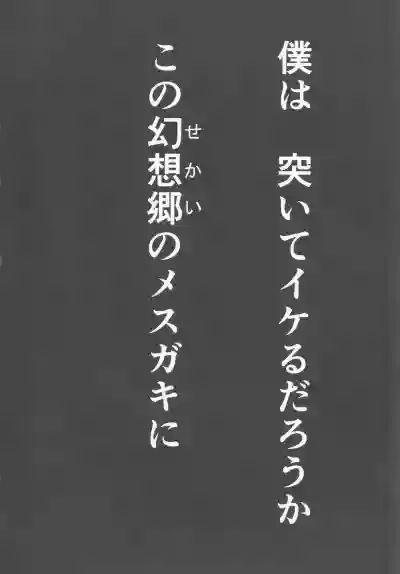 僕は　突いてイケるだろうか
この幻想郷のメスガキに
せかい